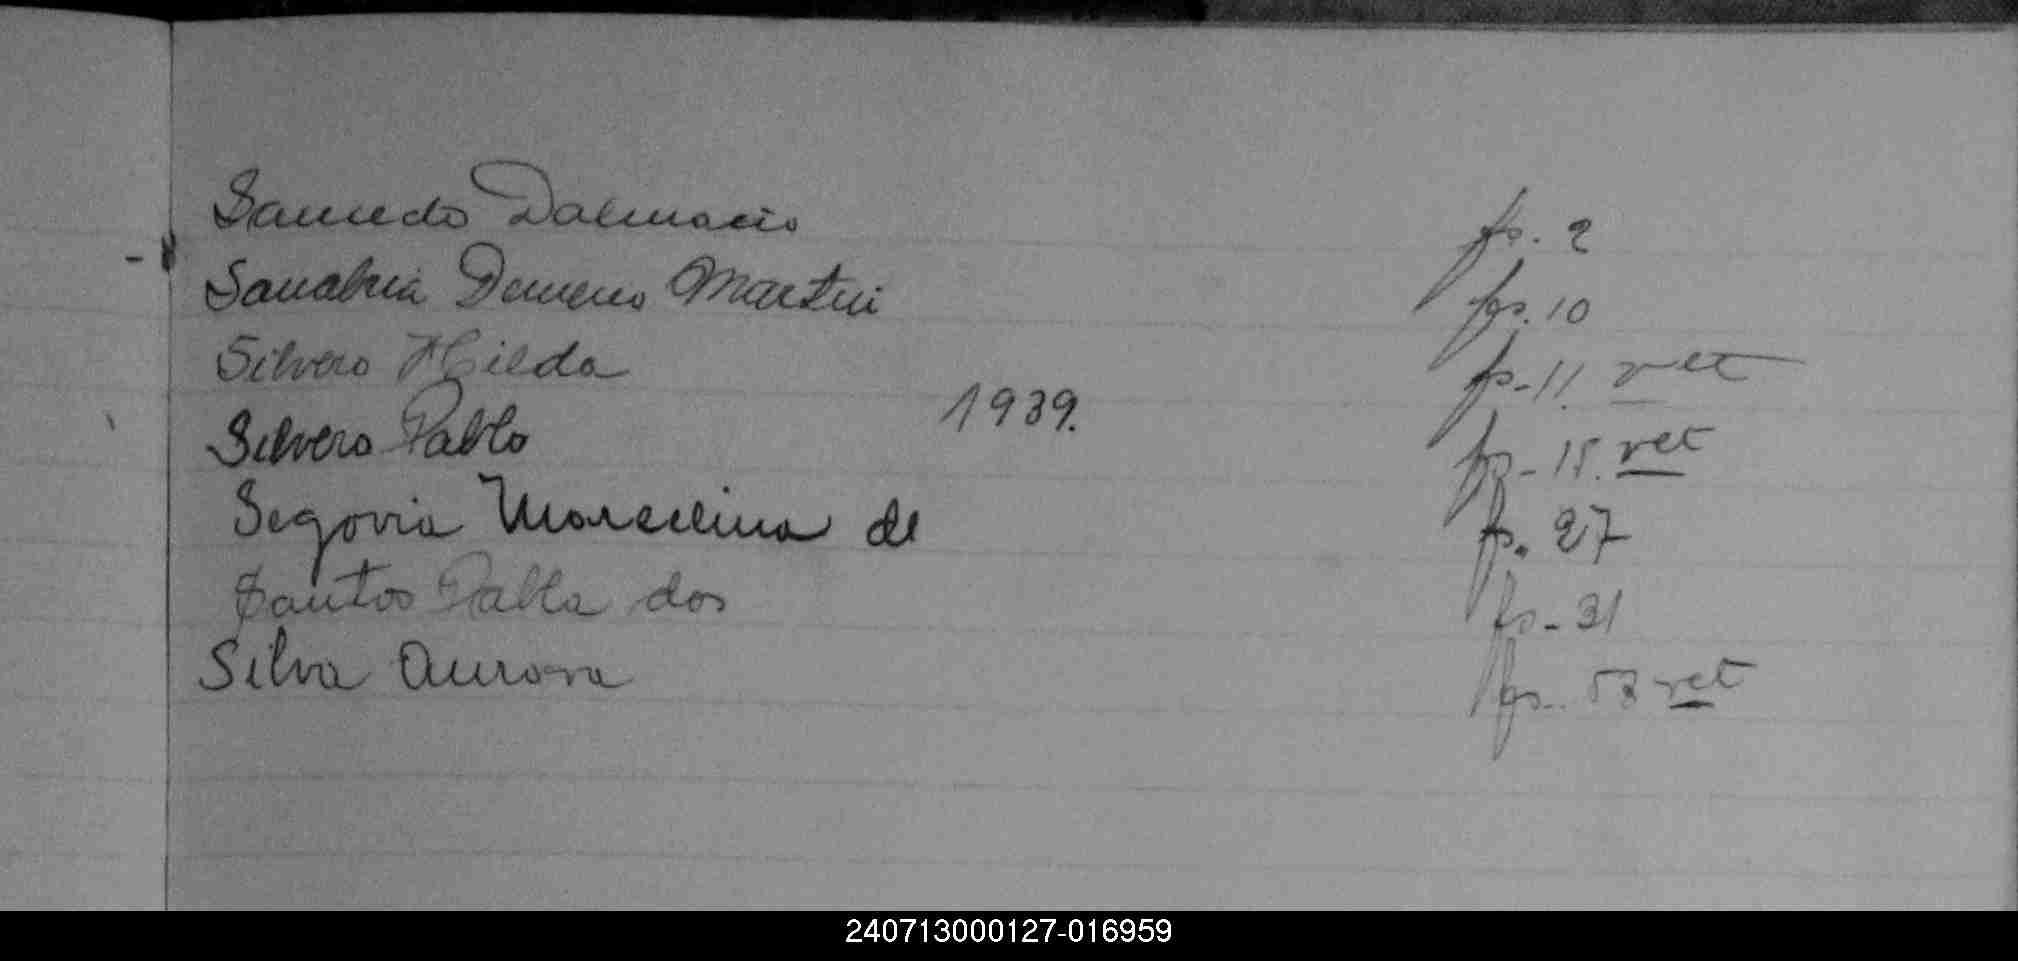 Saucedo Dalmacio fs. 2
Sanabria Demenio Martin fs. 10
Silvero Hilda fs-11. vlt
Silvero Pablo 1939. fs-15. vlt
Segovia Marcelina de fs. 27
Santos Pabla dos fs-31
Silva Aurora fs. 53 vlt
240713000127-016959